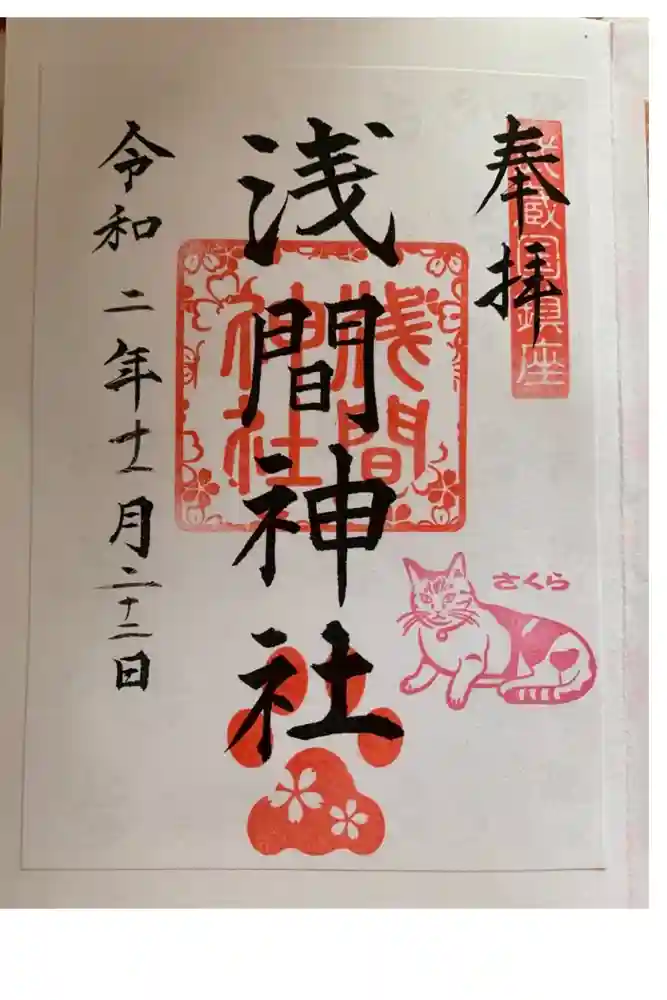 奉拝
武蔵国鎮座
浅間神社
浅間
神社
さくら
令和二年十一月二十二日